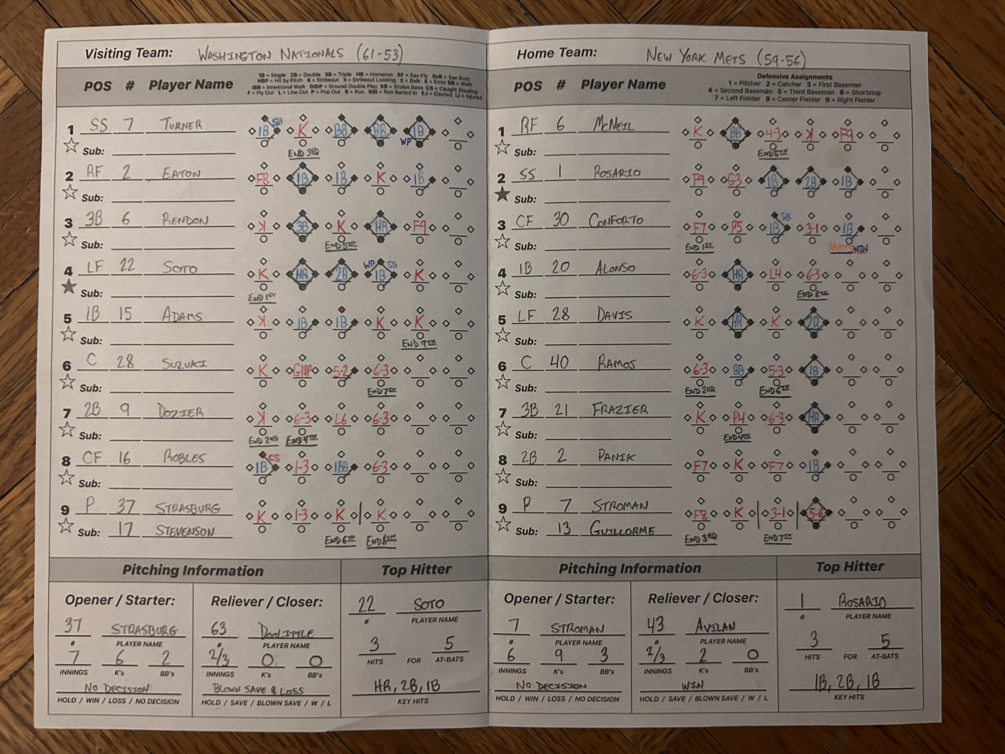 Visiting Team: WASHINGTON NATIONALS (61-53)
POS # Player Name
1B = Single 2B = Double 3B = Triple HR = Homerun SF = Sac Fly ScB = Sac Bunt
HBP = Hit by Pitch K = Strikeout ꓘ = Strikeout Looking E = Error BB = Walk
IBB = Intentional Walk GIDP = Ground Double Play SB = Stolen Base CS = Caught Stealing
F = Fly Out L = Line Out P = Pop Out R = Run RBI = Run Batted In EJ = Ejected IJ = Injured
1 SS 7 TURNER 1B SB K BB BB 1B
Sub: END 3RD WP
2 RF 2 EATON F8 1B 1B K 1B
Sub:
3 3B 6 RENDON ꓘ 3B K HR F9
Sub: END 5TH
4 LF 22 SOTO K HR 2B WP 1B SB K
Sub: END 1ST
5 1B 15 ADAMS ꓘ 1B 1B K K
Sub: END 9TH
6 C 28 SUZUKI K GIDP 5-2 6-3
Sub: END 7TH
7 2B 9 DOZIER ꓘ 6-3 L6 6-3
Sub: END 2ND END 4TH
8 CF 16 ROBLES 1B CS 1-3 IBB 6-3
Sub:
9 P 37 STRASBURG K 1-3 K K
Sub: 17 STEVENSON END 6TH END 8TH
Pitching Information Top Hitter
Opener / Starter: Reliever / Closer: 22 SOTO
# PLAYER NAME
37 STRASBURG 63 DOOLITTLE
# PLAYER NAME # PLAYER NAME
7 6 2 2/3 0 0 3 5
INNINGS K's BB's INNINGS K's BB's HITS FOR AT-BATS
NO DECISION BLOWN SAVE & LOSS HR, 2B, 1B
HOLD / WIN / LOSS / NO DECISION HOLD / SAVE / BLOWN SAVE / W / L KEY HITS
Home Team: NEW YORK METS (59-56)
POS # Player Name
Defensive Assignments
1 = Pitcher 2 = Catcher 3 = First Baseman
4 = Second Baseman 5 = Third Baseman 6 = Shortstop
7 = Left Fielder 8 = Center Fielder 9 = Right Fielder
1 RF 6 MCNEIL K BB 4-3 ꓘ F9
Sub: END 5TH
2 SS 1 ROSARIO F9 G3 1B 2B 1B
Sub:
3 CF 30 CONFORTO F7 P5 1B SB 3-1 1B
Sub: END 1ST METS WIN
4 1B 20 ALONSO 6-3 HR L4 6-3
Sub: END 8TH
5 LF 28 DAVIS K HR K 2B
Sub:
6 C 40 RAMOS 6-3 BB 5-3 1B
Sub: END 2ND END 6TH
7 3B 21 FRAZIER K P4 6-3 HR
Sub: END 4TH
8 2B 2 PANIK F7 K F7 1B
Sub:
9 P 7 STROMAN F8 K 3-1 5-6
Sub: 13 GUILLORME END 3RD END 7TH
Pitching Information Top Hitter
Opener / Starter: Reliever / Closer: 1 ROSARIO
# PLAYER NAME
7 STROMAN 43 AVILAN
# PLAYER NAME # PLAYER NAME
6 9 3 2/3 2 0 3 5
INNINGS K's BB's INNINGS K's BB's HITS FOR AT-BATS
NO DECISION WIN 1B, 2B, 1B
HOLD / WIN / LOSS / NO DECISION HOLD / SAVE / BLOWN SAVE / W / L KEY HITS